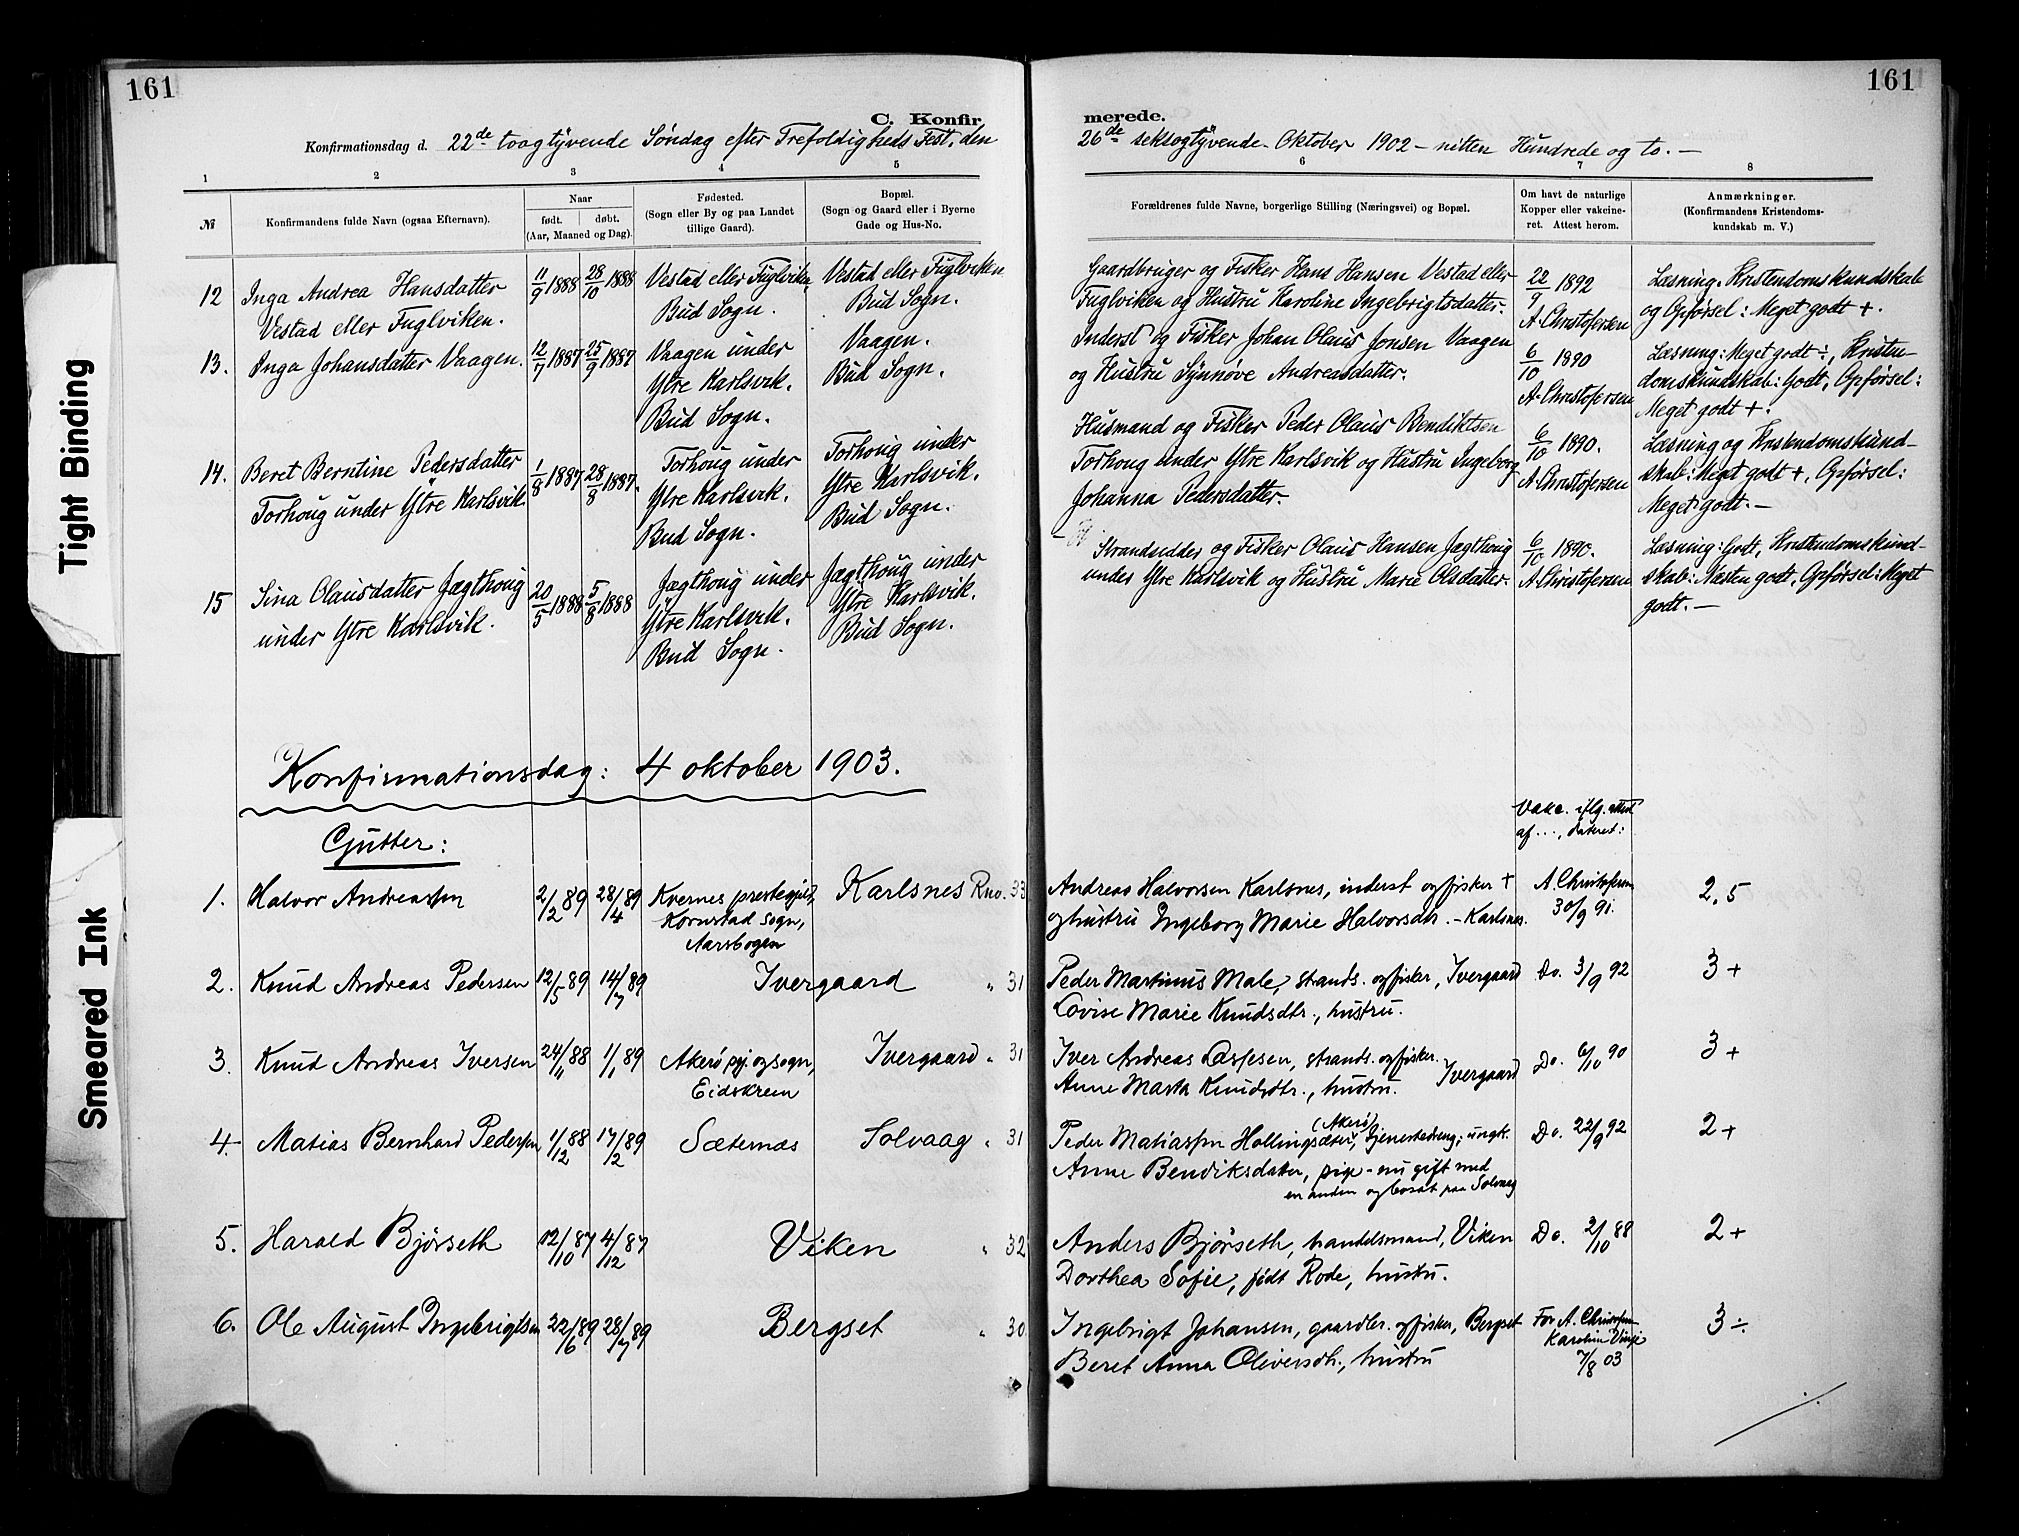 161
161
C. Konfir
merede.
Konfirmationsdag d. 22de toogtyvende Søndag efter Trefoldigheds Fest, den
26de seksogtyvende Oktober 1902 - nitten Hundrede og to. -
1 2 3 4 5 6 7 8
№
Konfirmandens fulde Navn (ogsaa Efternavn).
Naar
født. døbt.
(Aar, Maaned og Dag).
Fødested.
(Sogn eller By og paa Landet
tillige Gaard).
Bopæl.
(Sogn og Gaard eller i Byerne
Gade og Hus-No.
Forældrenes fulde Navne, borgerlige Stilling (Næringsvei) og Bopæl.
Om havt de naturlige
Kopper eller vakcine-
ret. Attest herom.
Anmærkninger.
(Konfirmandens Kristendoms-
kundskab m. V.)
12 Inga Andrea Hansdatter
Vestad eller Fuglviken.
11/9 1888 28/10 1888
Vestad eller Fuglviken,
Bud Sogn.
Vestad eller Fuglviken
Bud Sogn.
Gaardbruger og Fisker Hans Hansen Vestad eller
Fuglviken og Hustru Karoline Ingebrigtsdatter.
22/9 1892
A. Christofersen
Læsning, Kristendomskundskab
og Opførsel: Meget godt +.
13. Inga Johansdatter Vaagen.
12/7 1887 25/9 1887
Vaagen under
Ytre Karlsvik.
Bud Sogn.
Vaagen.
Bud Sogn.
Inderst og Fisker Johan Olaus Jonsen Vaagen
og Hustru Synnøve Andreasdatter.
6/10 1890
A. Christofersen
Læsning: Meget godt ÷, Kristen-
domskundskab: Godt, Opførsel:
Meget godt +.
14. Beret Berntine Pedersdatter
Torhoug under Ytre Karlsvik.
1/8 1887 28/8 1887.
Torhoug under
Ytre Karlsvik.
Bud Sogn.
Torhoug under
Ytre Karlsvik.
Bud Sogn.
Husmand og Fisker Peder Olaus Bendiktsen
Torhoug under Ytre Karlsvik og Hustru Ingeborg
Johanna Pedersdatter.
6/10 1890.
A. Christofersen
Læsning og Kristendomskund-
skab: Meget godt +, Opførsel:
Meget godt. -
15 Sina Olausdatter Jægthoug
under Ytre Karlsvik.
20/5 1888 5/8 1888
Jægthoug under
Ytre Karlsvik.
Bud Sogn.
Jægthoug under
Ytre Karlsvik.
Bud Sogn.
Strandsidder og Fisker Olaus Hansen Jægthoug
under Ytre Karlsvik og Hustru Marie Olsdatter.
6/10 1890.
A. Christofersen
Læsning: Godt, Kristendomskund-
skab: Næsten godt, Opførsel: Meget
godt. -
Konfirmationsdag: 4 oktober 1903.
Gutter:
Vakc. iflg. attest
af ..., dateret:
1. Halvor Andreassen 2/2 89 28/4 89
Kvernes prestegjeld,
Kornstad sogn,
Aarsbogen
Karlsnes Rno. 33
Andreas Halvorsen Karlsnes, inderst og fisker +
og hustru Ingeborg Marie Halvorsdtr. - Karlsnes.
A. Christofersen
30/9 91.
2,5
2. Knud Andreas Pedersen 12/5 89 14/7 89 Ivergaard " 31
Peder Martinus Male, strands. og fisker, Ivergaard
Lovise Marie Knudsdtr., hustru.
Do. 3/9 92
3+
3. Knud Andreas Iversen 24/11 88 1/1 89
Akerø pgj. og sogn,
Eidskrem
Ivergaard " 31
Iver Andreas Aspesen, strands. og fisker.
Anne Marta Knudsdtr., hustru. Ivergaard
Do. 6/10 90
3+
4. Matias Bernhard Pedersen 1/12 88 17/2 89 Sæternæs Solvaag " 31
Peder Matiassen Hollingsæter, (Akerø), tjenestedreng; ungk.
Anne Bendiksdatter, pige - nu gift med
en anden og bosat paa Solvaag
Do. 22/9 92
2+
5. Harald Bjørseth 12/10 87 4/12 87 Viken " 32
Anders Bjørseth, handelsmand, Viken
Dorthea Sofie, født Rode, hustru.
Do. 2/10 88
2+
6. Ole August Ingebrigtsen 22/6 89 28/7 89 Bergset " 30
Ingebrigt Johansen, gaardbr. og fisker, Bergset
Beret Anna Oliversdtr., hustru
For A. Christofersen
Karolin Vinje
7/8 03
3÷
Tight Binding
Smeared Ink